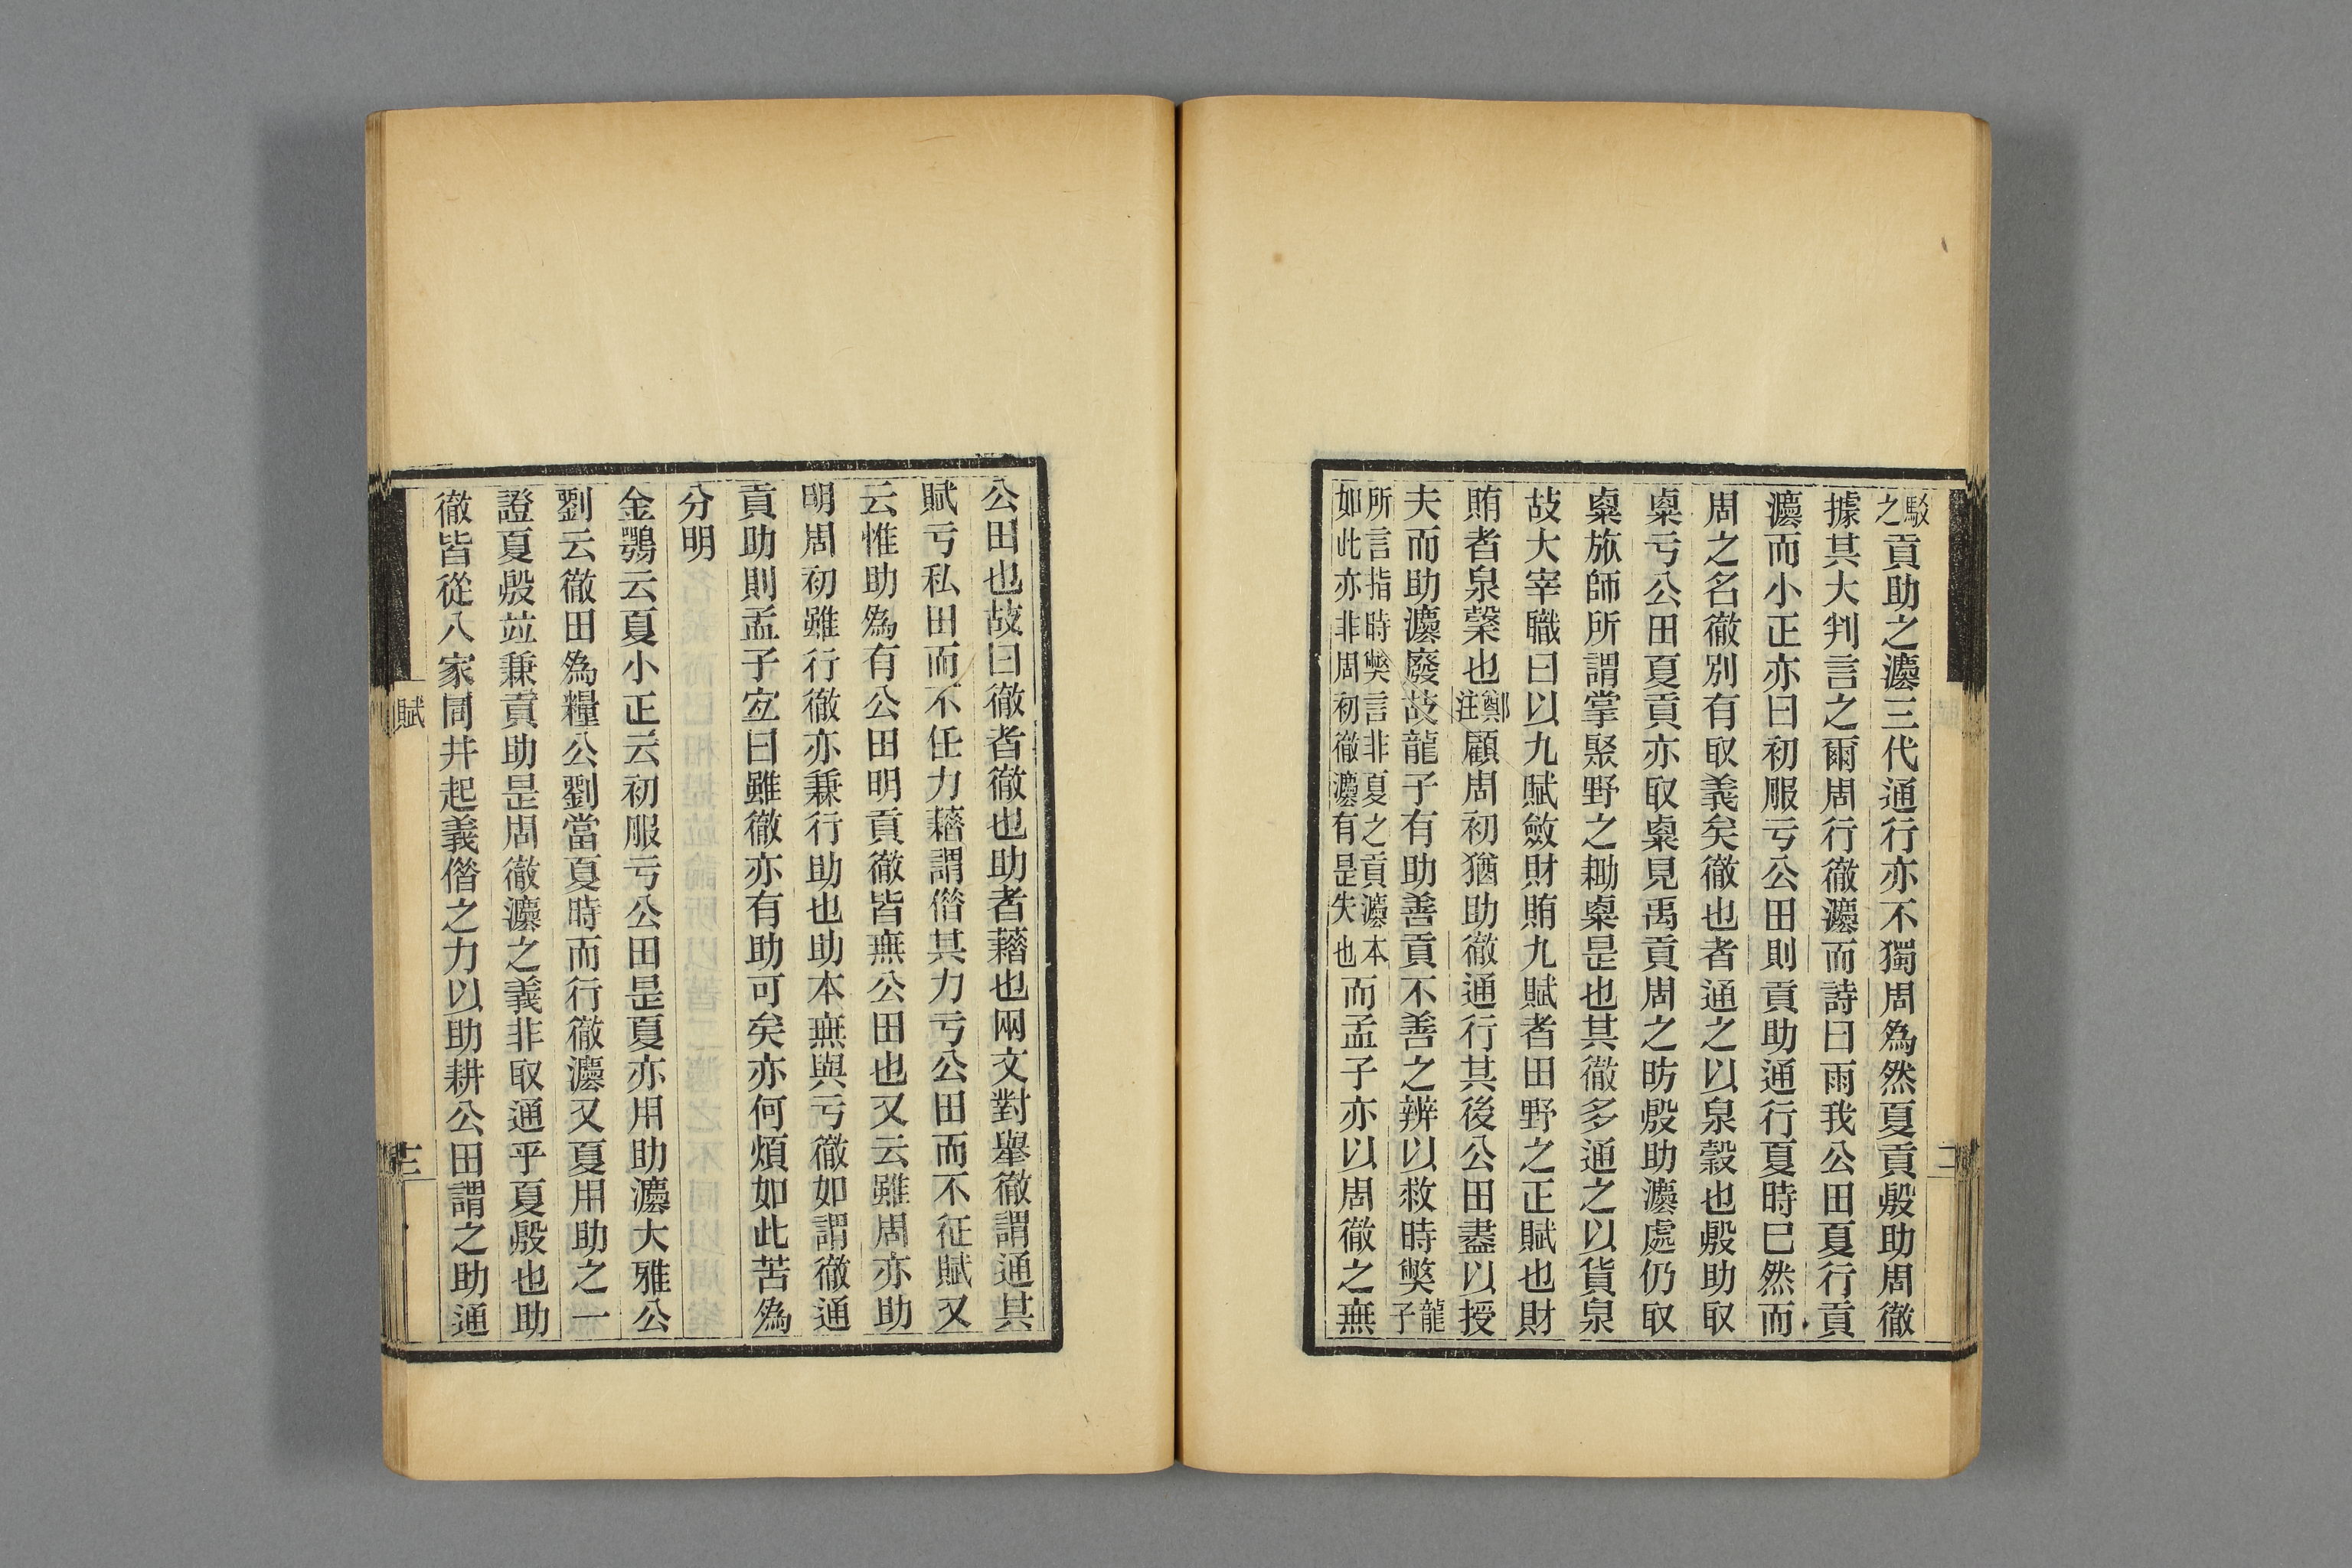 駁之貢助之灋三代通行亦不獨周為然夏貢殷助周徹
據其大判言之爾周行徹灋而詩曰雨我公田夏行貢
灋而小正亦曰初服亏公田則貢助通行夏時巳然而
周之名徹別有取義矣徹也者通之以泉穀也殷助取
粟亏公田夏貢亦取粟見禹貢周之昉殷助灋處仍取
粟旅師所謂掌聚野之耡粟是也其徹多通之以貨泉
故大宰職曰以九賦斂財賄九賦者田野之正賦也財
賄者泉榖也鄭注顧周初猶助徹通行其後公田盡以授
夫而助灋廢故龍子有助善貢不善之辨以救時獘龍子
所言指時獘言非夏之貢灋本如此亦非周初徹灋有是失也而孟子亦以周徹之無
公田也故曰徹者徹也助者藉也兩文對舉徹謂通其
賦亏私田而不任力藉謂借其力亏公田而不征賦又
云惟助為有公田明貢徹皆無公田也又云雖周亦助
明周初雖行徹亦兼行助也助本無與亏徹如謂徹通
貢助則孟子宐曰雖徹亦有助可矣亦何煩如此苦為
分明
金鶚云夏小正云初服亏公田是夏亦用助灋大雅公
劉云徹田為糧公劉當夏時而行徹灋又夏用助之一
證夏殷竝兼貢助是周徹灋之義非取通乎夏殷也助
徹皆從八家同井起義借之力以助耕公田謂之助通
賦
三
二